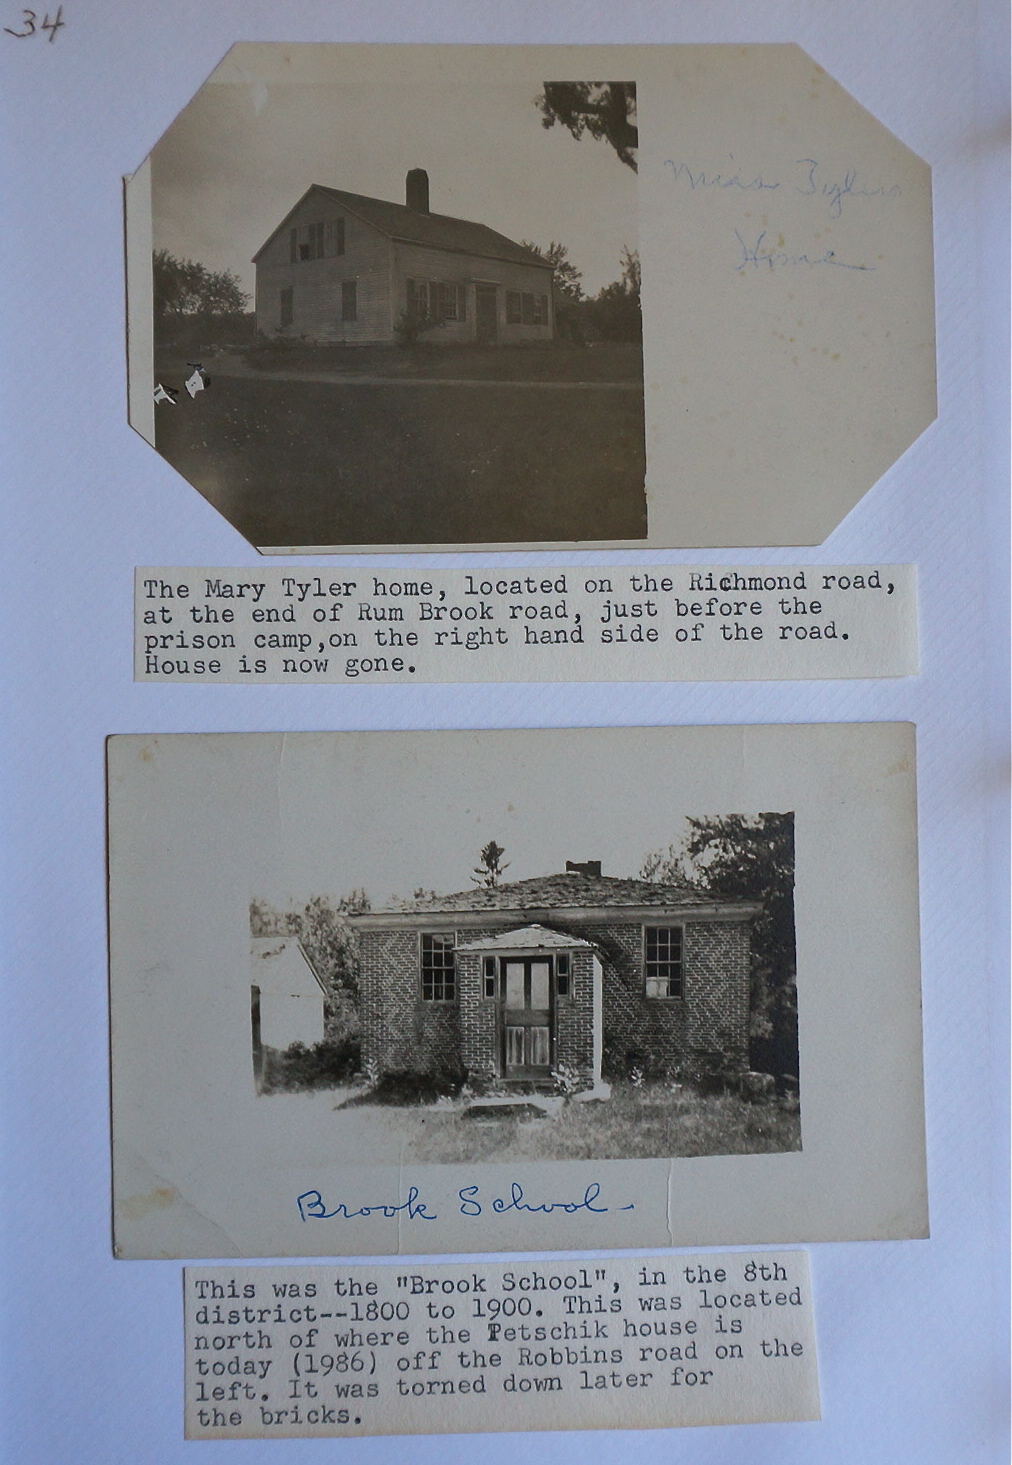 34
Miss Tylers
Home
The Mary Tyler home, located on the Richmond road,
at the end of Rum Brook road, just before the
prison camp,on the right hand side of the road.
House is now gone.
Brook School
This was the "Brook School", in the 8th
district--1800 to 1900. This was located
north of where the Petschik house is
today (1986) off the Robbins road on the
left. It was torned down later for
the bricks.